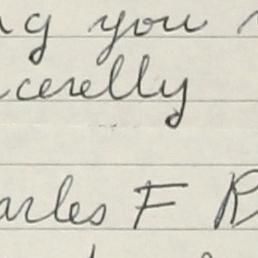 ng you
cerelly
arles F B